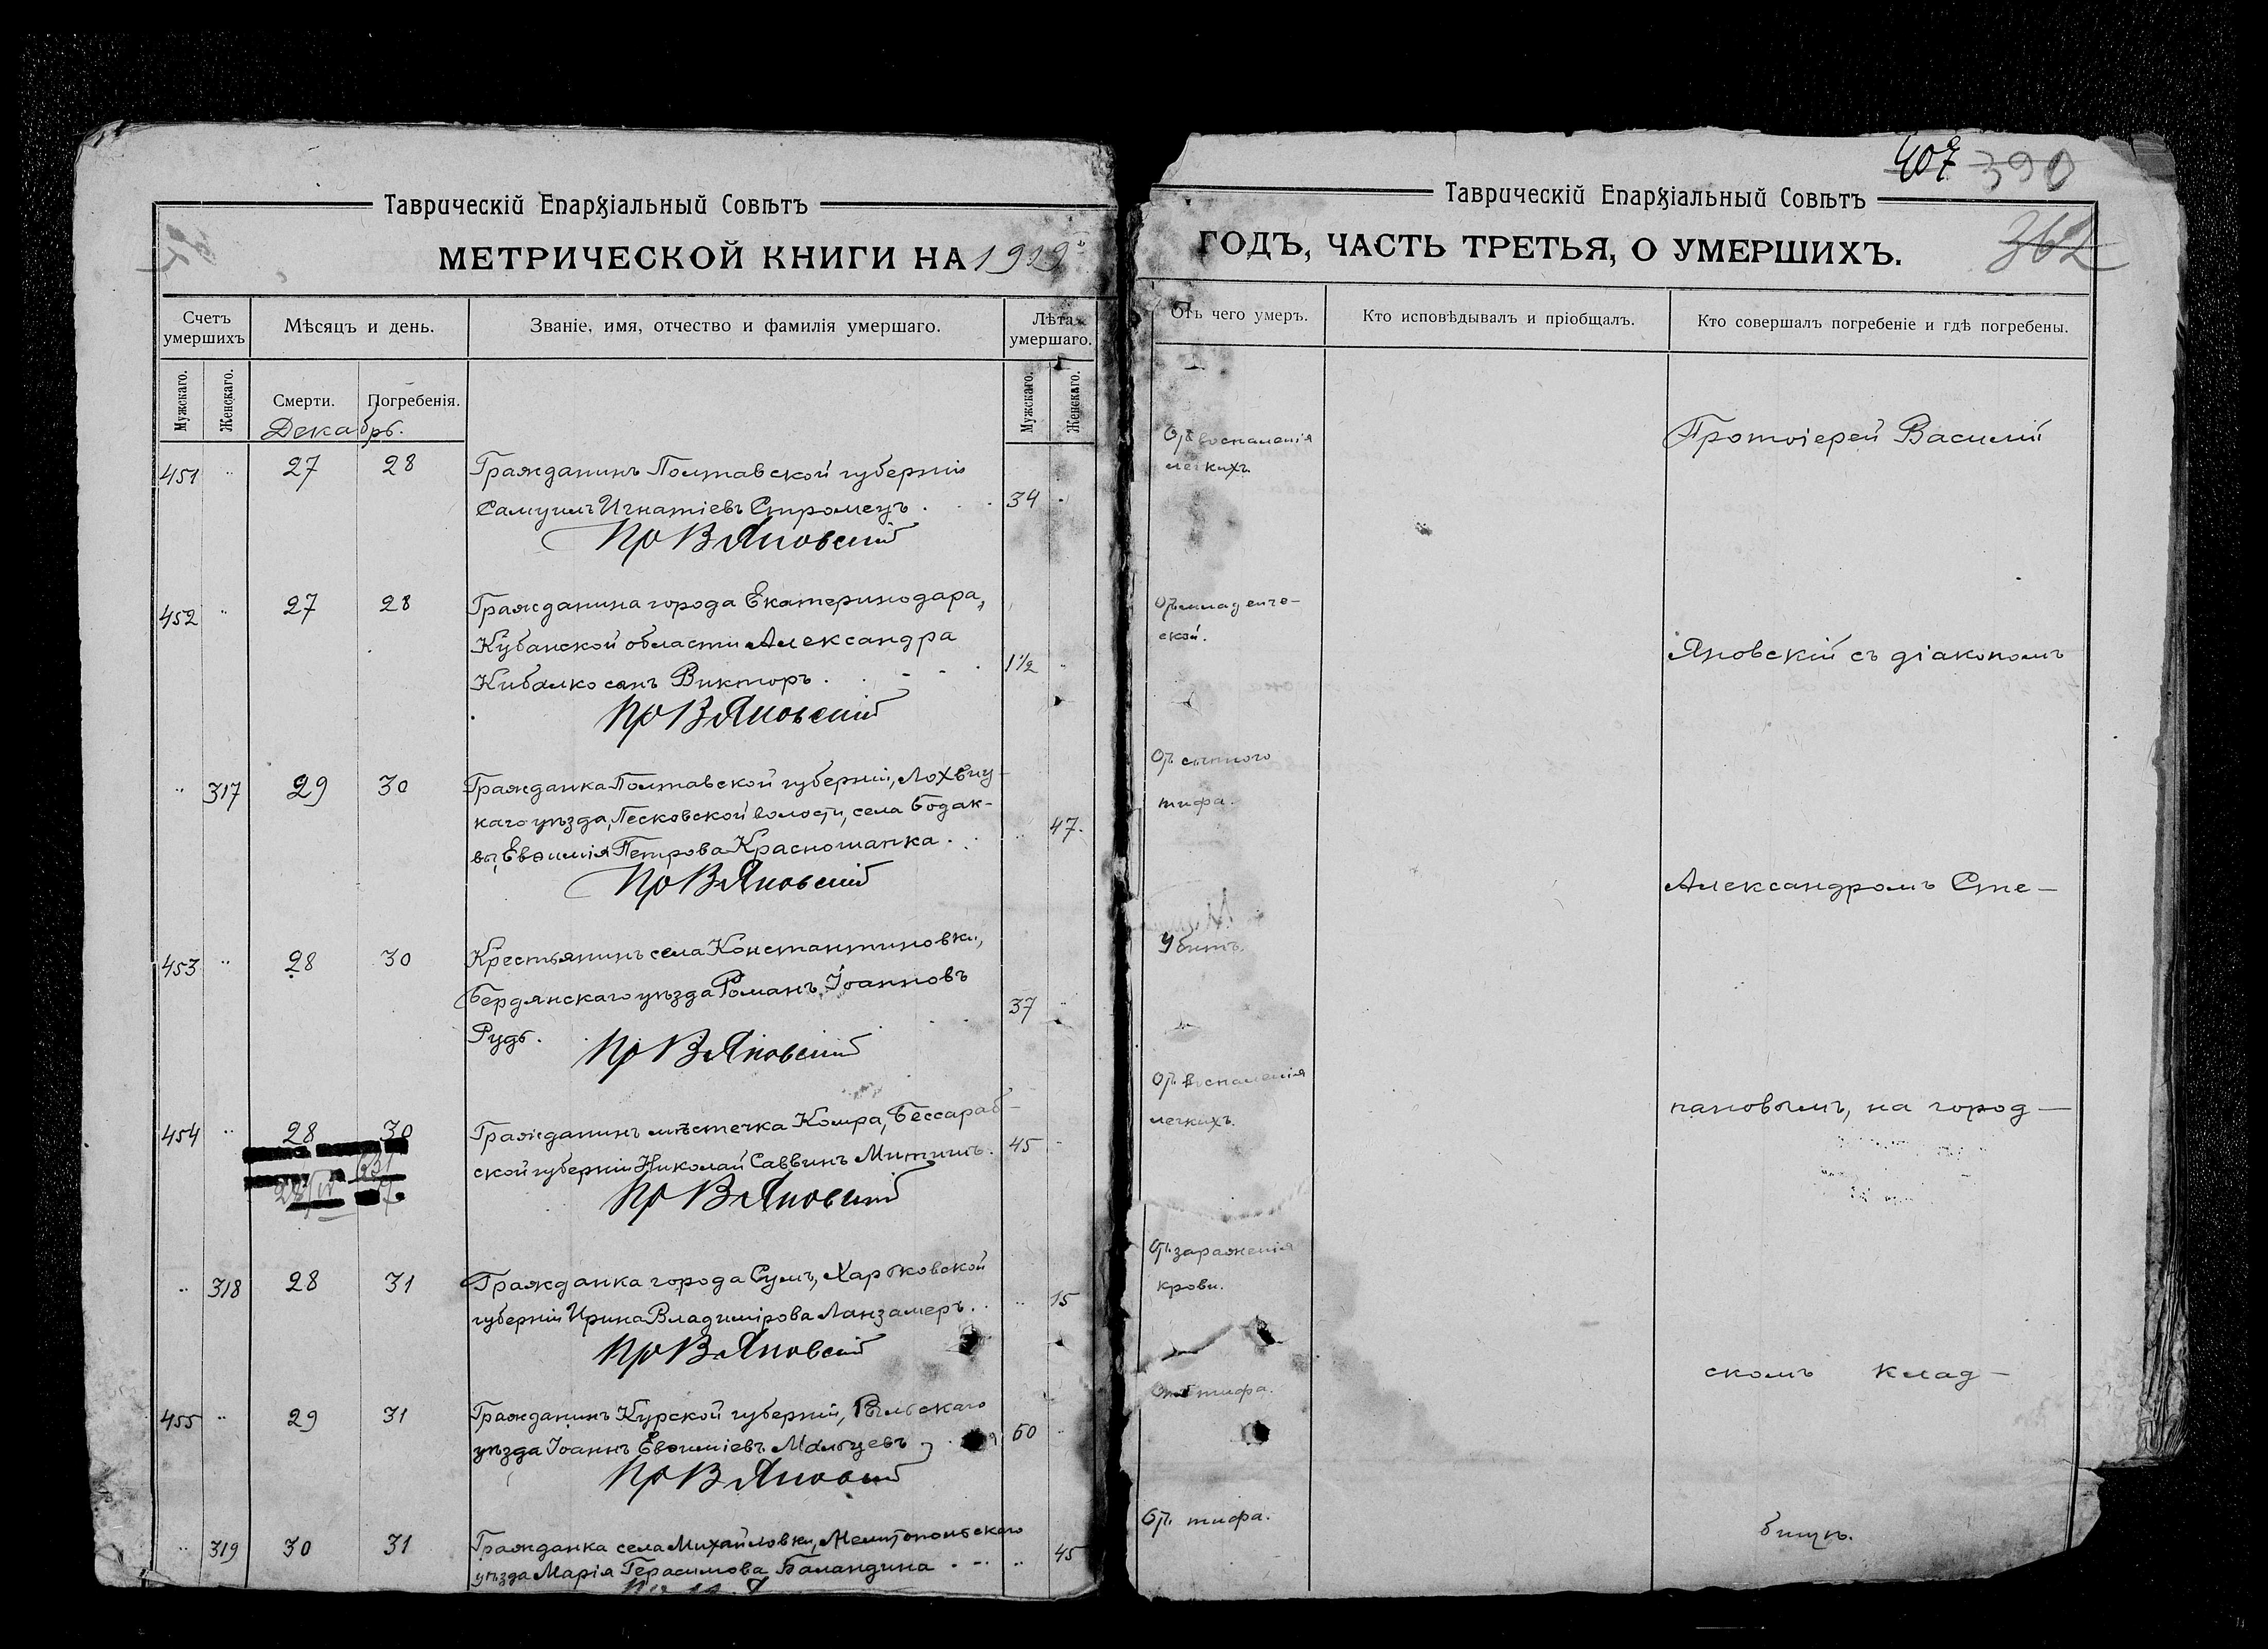 Таврическій Епархіальный Совѣтъ
МЕТРИЧЕСКОЙ КНИГИ НА 1919
Счетъ умершихъ
Мѣсяцъ и день.
Званіе, имя, отчество и фамилія умершаго.
Лѣта умершаго.
Мужскаго.
Женскаго.
Смерти.
Погребенія.
Мужскаго.
Женскаго.
Декабрь.
451 " 27 28 Гражданинъ Полтавской губерніи
Самуилъ Игнатіевъ Стромецъ . . . 34 "
Пр В Яновскій
452 " 27 28 Гражданина города Екатеринодара,
Кубанской области Александра
Кибалко сынъ Викторъ . . - - 1½ "
Пр В Яновскій
" 317 29 30 Гражданка Полтавской губерніи, Лохвиц-
каго уѣзда, Песковской волости, села Бодак-
вы, Евѳимія Петрова Красношапка . . " 47.
Пр В Яновскій
453 " 28 30 Крестьянинъ села Константиновки,
Бердянскаго уѣзда Романъ Іоанновъ
Рудь. 37 "
Пр В Яновскій
454 " 28 30 Гражданинъ мѣстечка Комра, Бессараб-
ской губерніи Николай Саввинъ Митишъ. 45 "
Пр В Яновскій
" 318 28 31 Гражданка города Сумъ, Харьковской
губерніи Ирина Владимірова Ланзамеръ. . " 15
Пр В Яновскій
455 " 29 31 Гражданинъ Курской губерніи, Рыльскаго
уѣзда Іоаннъ Евѳиміевъ Мальцевъ 60 "
Пр В Яновскій
" 319 30 31 Гражданка села Михайловки, Мелитопольскаго
уѣзда Марія Герасимова Баландина . - - " 45
407 390
362
Таврическій Епархіальный Совѣтъ
ГОДЪ, ЧАСТЬ ТРЕТЬЯ, О УМЕРШИХЪ.
Отъ чего умеръ.
Кто исповѣдывалъ и пріобщалъ.
Кто совершалъ погребеніе и гдѣ погребены.
Отъ воспаленія
легкихъ.
Отъ младенче-
ской.
Отъ сыпного
тифа.
Убитъ.
Отъ воспаленія
легкихъ.
Отъ зараженія
крови.
Отъ тифа.
Отъ тифа.
Протоіерей Василій
Яновскій съ діакономъ
Александромъ Сте-
пановымъ, на город-
скомъ клад-
бищѣ.